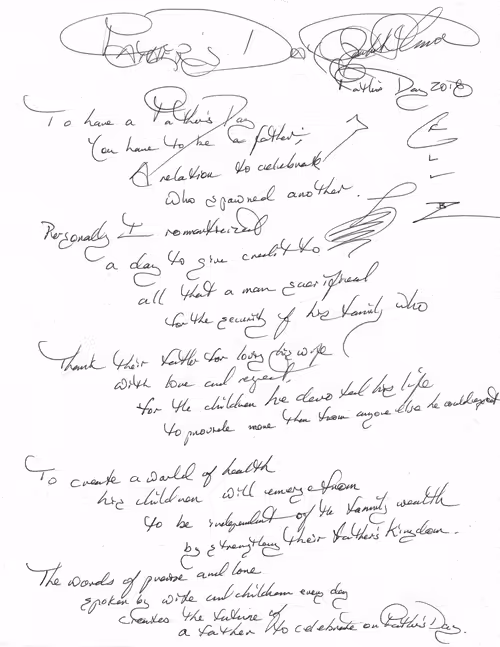 FATHER'S D
Father's Day 2018
To have a Father's Day
You have to be a father;
A relation to celebrate
who spawned another.
Personally I romanticized
a day to give credit to
all that a man sacrificed
for the security of his family who
Thank their father for loving his wife
with love and respect,
for the children he devoted his life
to provide more than from anyone else he could expect
To create a world of health
his children will emerge from
to be independent of the family wealth
by strengthening their father's Kingdom.
The words of praise and love
spoken by wife and children every day
creates the future of
a father to celebrate on Father's Day.